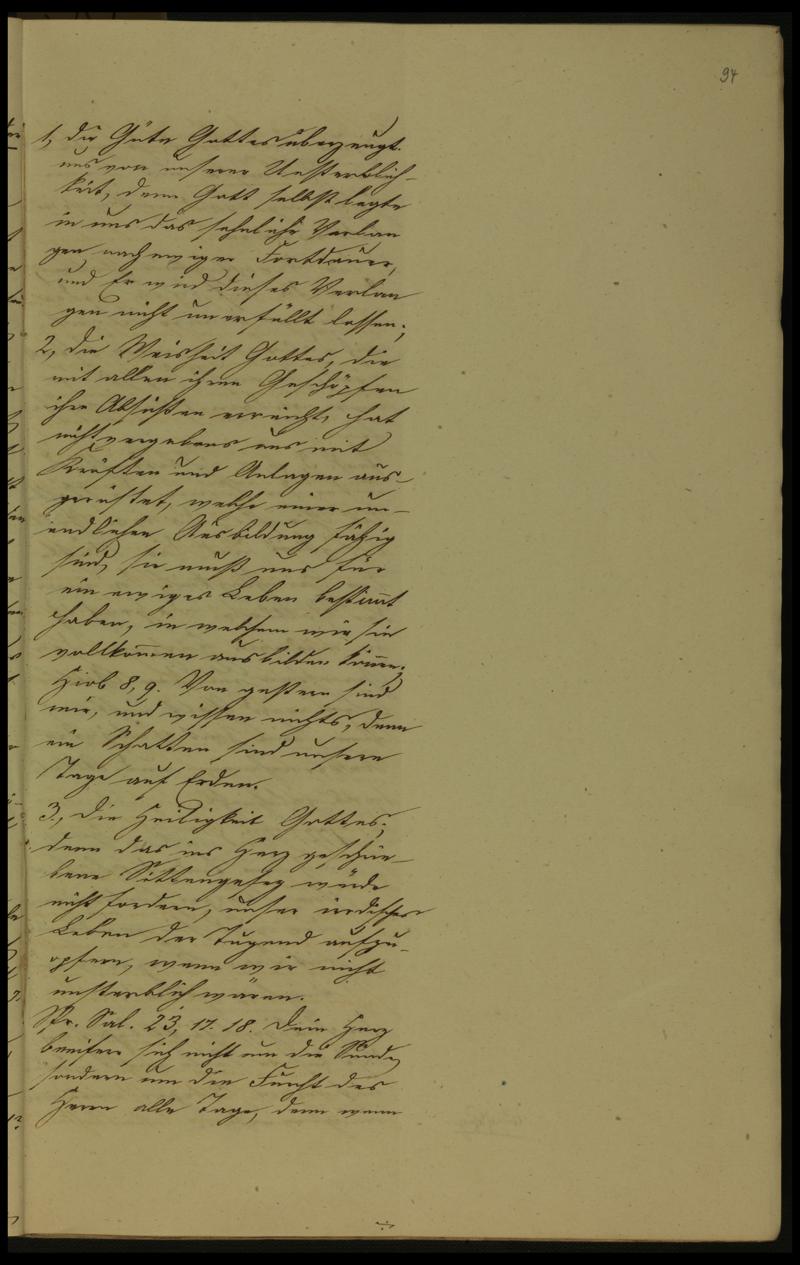 94
1, die Güte Gottes überzeugt
uns von unserer Unsterblich-
keit, denn Gott selbst legte
in uns das sehnliche Verlan
gen nach ewiger Fortdauer,
und Er wird dieses Verlan
gen nicht unerfüllt lassen;
2, die Weisheit Gottes, die
mit allen ihren Geschöpfen
ihre Absichten erreicht, hat
nicht vergebens uns mit
Kräften und Anlagen aus-
gerüstet, welche einer un-
endlichen Ausbildung fähig
sind, sie muß uns für
ein ewiges Leben bestim̄t
haben, in welchem wir sie
vollkom̄en ausbilden kön̄en;
Hiob 8, 9. Von gestern sind
wir, und wissen nichts, denn
ein Schatten sind unsere
Tage auf Erden.
3., die Heiligkeit Gottes;
denn das ins Herz geschrie-
bene Sittengesetz würde
nicht fordern, unser irdisches
Leben der Tugend aufzu-
opfern, wenn wir nicht
unsterblich wären.
Spr. Sal. 23, 17. 18. Dein Herz
beeifere sich nicht um die Sünde,
sondern um die Furcht des
Herrn alle Tage, denn wenn